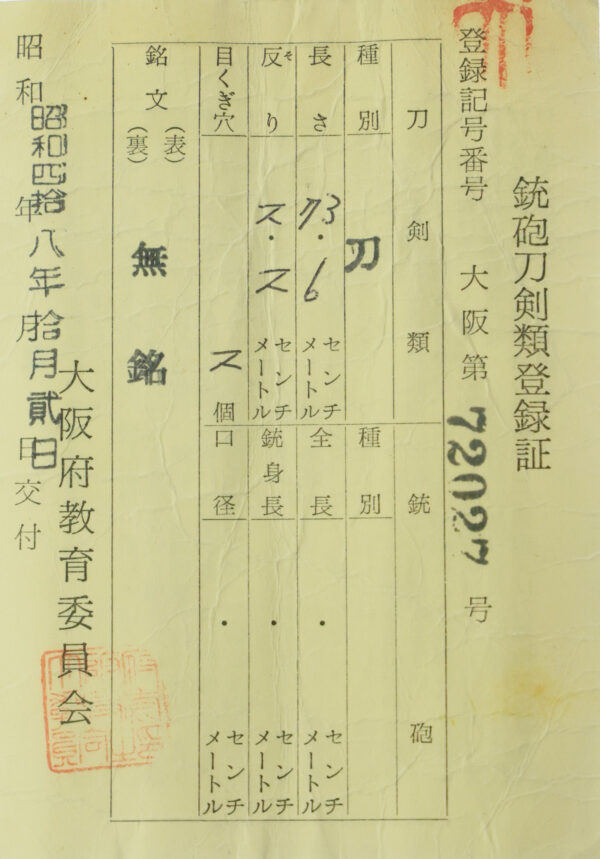 銃砲刀剣類登録証
登録記号番号 大阪第 72027 号
刀剣類
種別 刀
長さ 73.6 センチメートル
反り 2.2 センチメートル
そ
目くぎ穴 2 個
銘文 (表) (裏) 無銘
銃砲
種別
全長 ・ センチメートル
銃身長 ・ センチメートル
口径 ・ センチメートル
大阪府教育委員会
昭和 年 月 日交付
昭和四拾八年拾月貳日